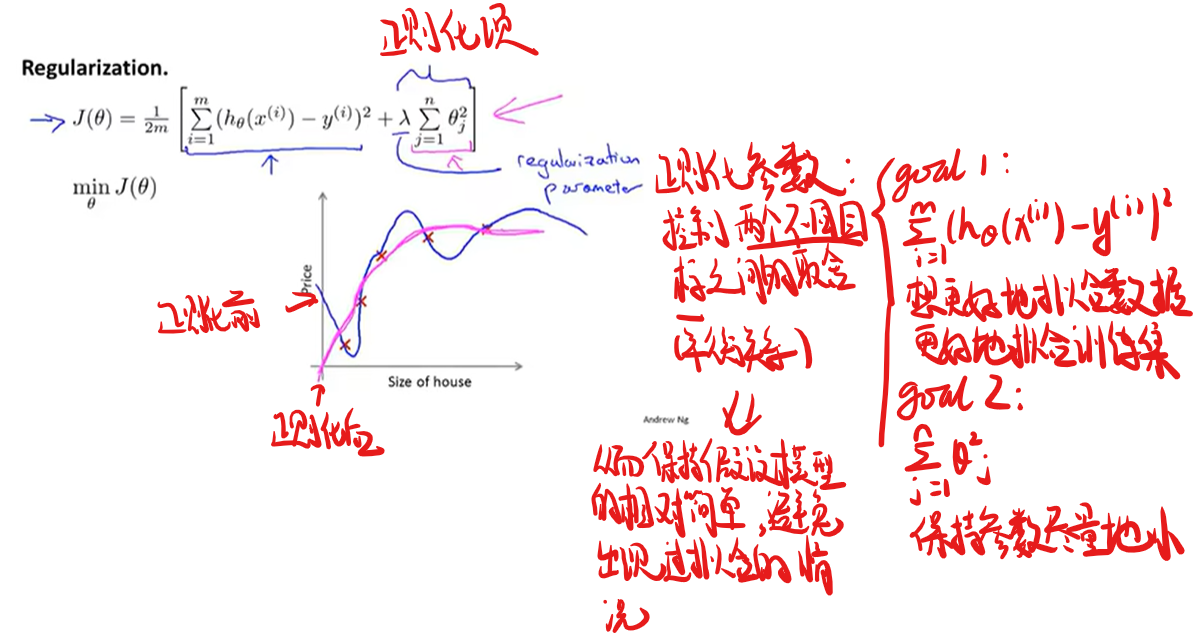 正则化项
Regularization.
J(θ) = 1/2m [ ∑_{i=1}^{m} (h_θ(x^{(i)}) − y^{(i)})² + λ ∑_{j=1}^{n} θ_j² ]
min_θ J(θ)
regularization
parameter
Price
Size of house
正则化前
正则化后
Andrew Ng
正则化参数：
控制两个不同目
标之间的取舍
(平衡关系)
从而保持假设模型
的相对简单，避免
出现过拟合的情
况
goal 1:
∑_{i=1}^{m} (h_θ(x^{(i)}) − y^{(i)})²
想更好地拟合数据
更好地拟合训练集
goal 2:
∑_{j=1}^{n} θ²_j
保持参数尽量地小